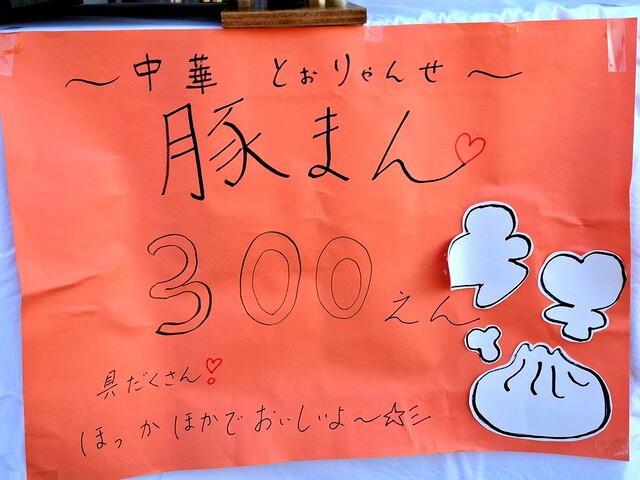 ～中華 とぉりゃんせ～
豚まん♡
300えん
具だくさん!
ほっかほかでおいしいよ～☆彡